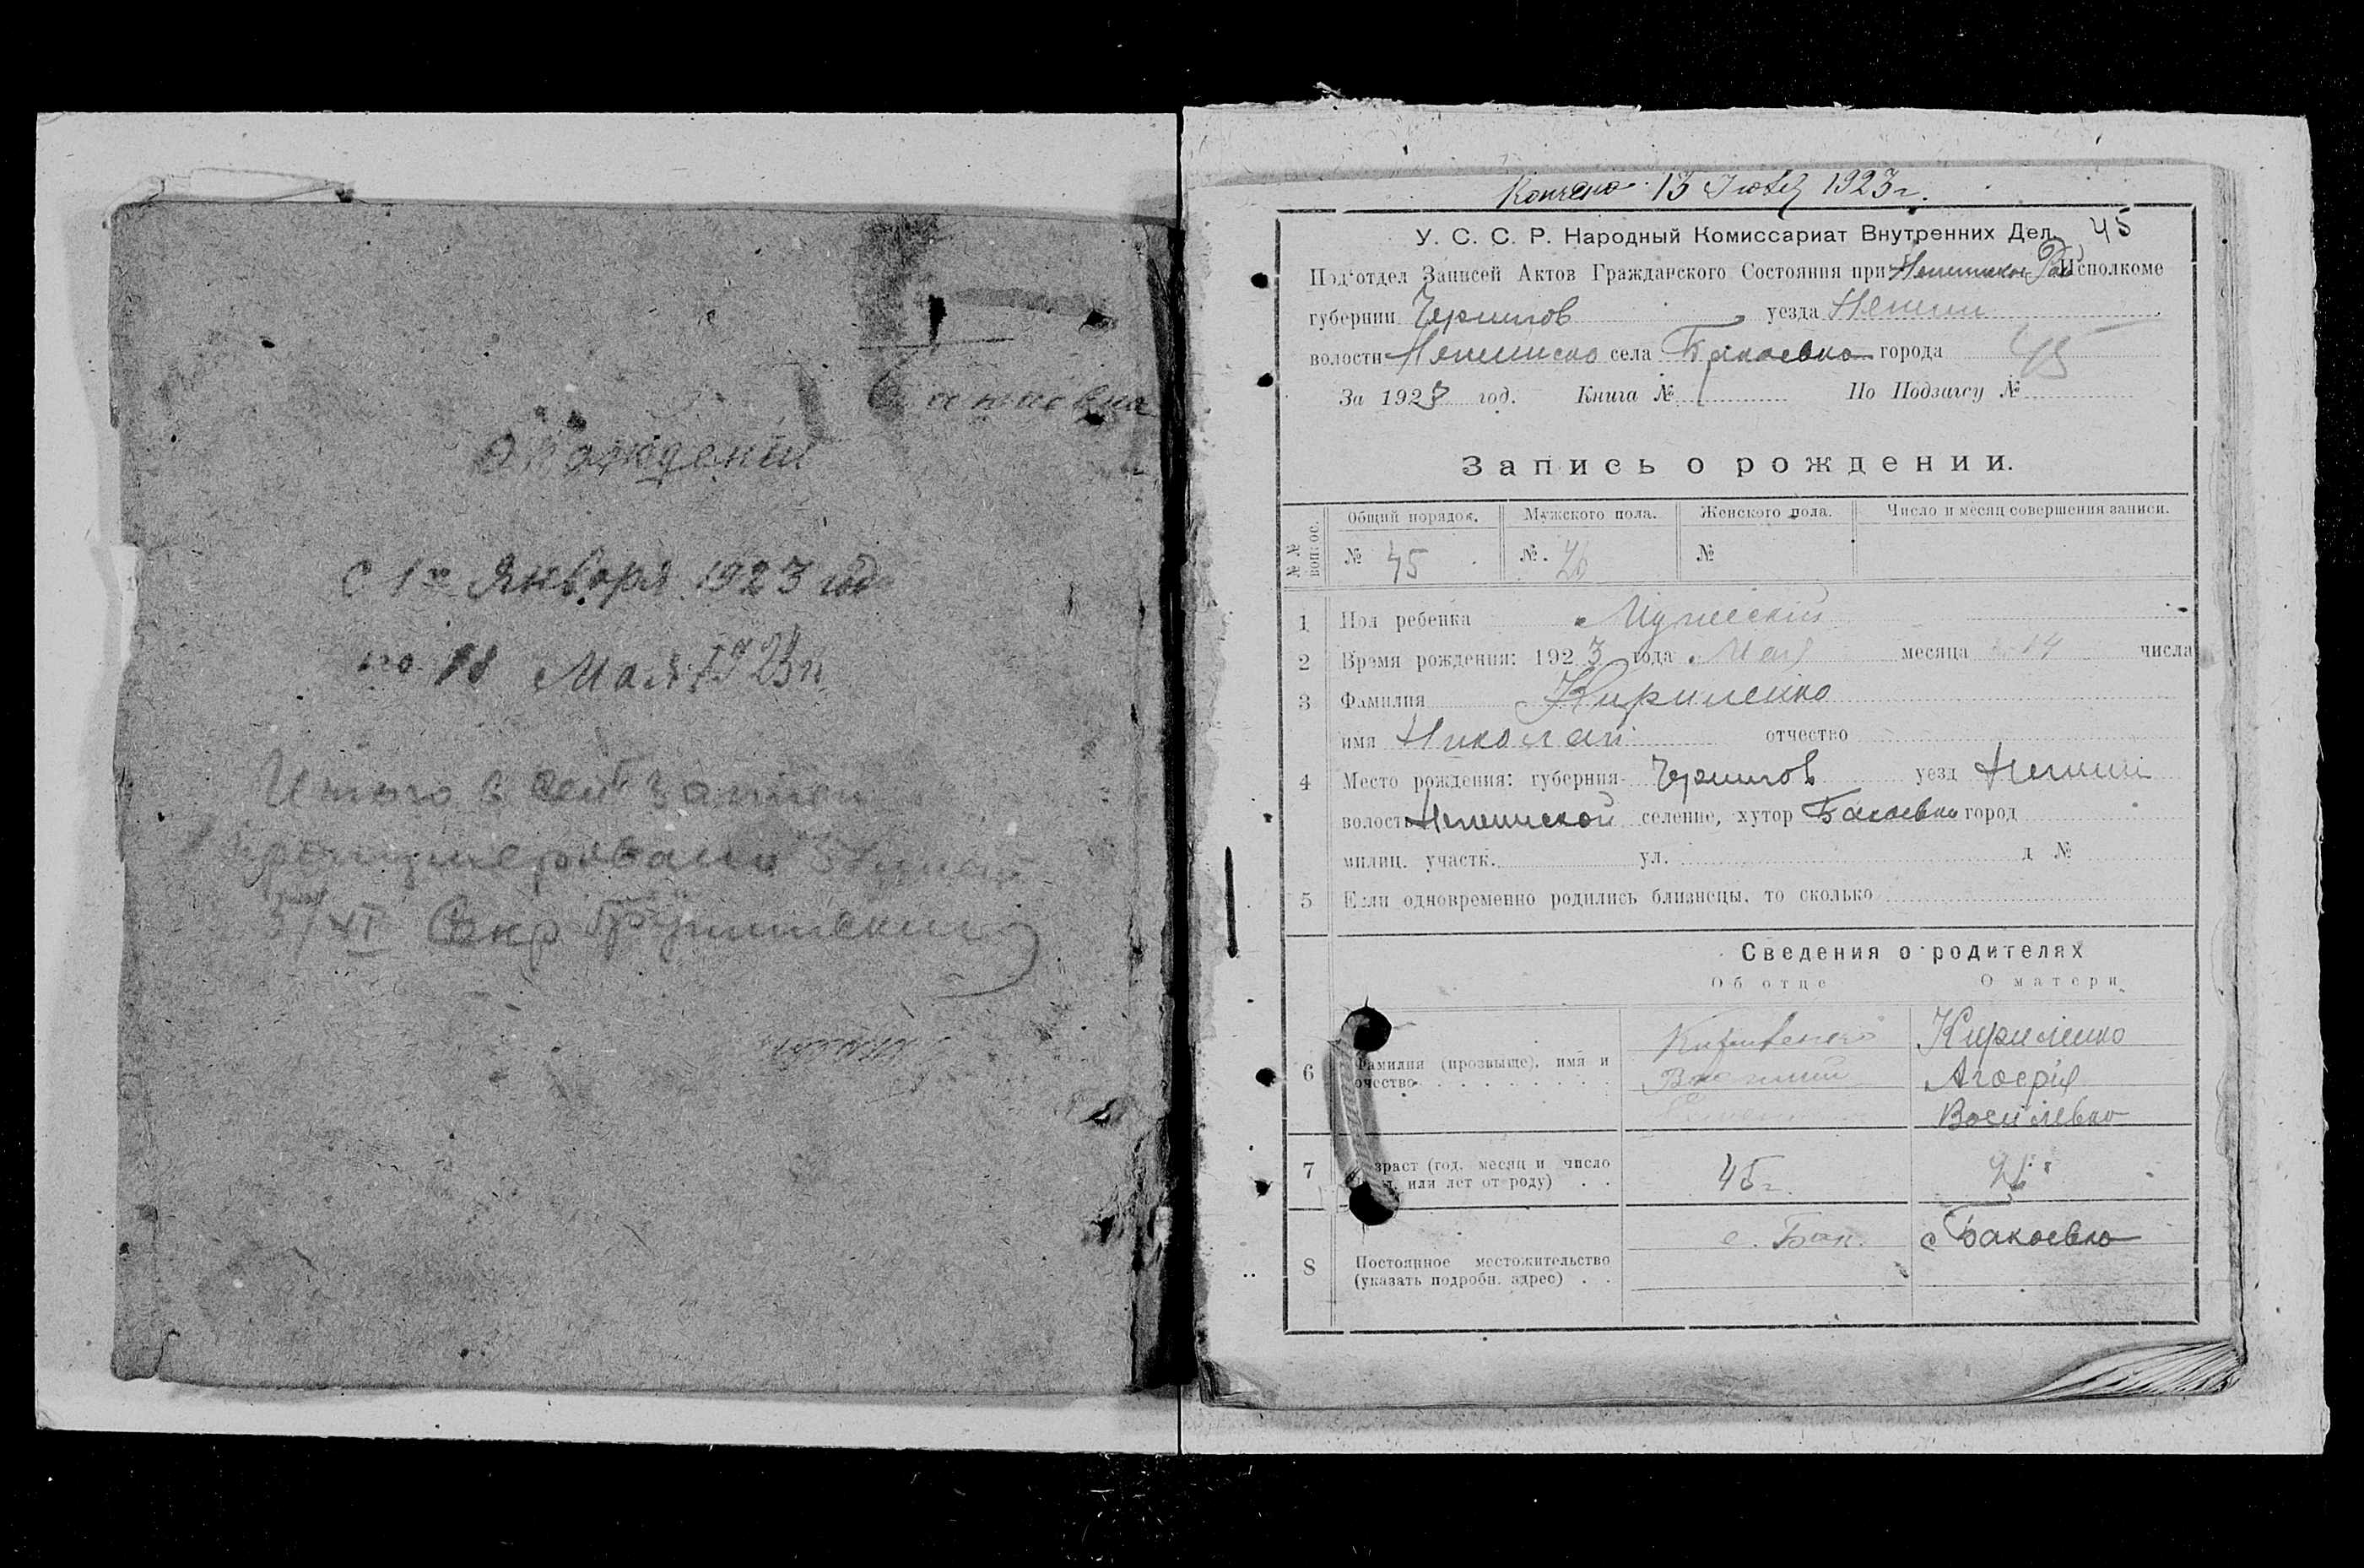 Бакаевка
О рождении
С 1го Января 1923 год
по 18 Мая 1923 г.
Итого в сей
пронумеровано
3/XI Секр
Кончено 13 Июля 1923 г.
У. С. С. Р. Народный Комиссариат Внутренних Дел. 45
Под'отдел Записей Актов Гражданского Состояния при Исполкоме
губернии Чернигов уезда Нежин
волости Нежинско села Бакаевка города 45
За 1923 год. Книга № По Подзагсу №
Запись о рождении.
№№ вопрос. Общий порядок. Мужского пола. Женского пола. Число и месяц совершения записи.
№ 45 № 26 №
1 Пол ребенка Мужеский
2 Время рождения: 1923 года Мая месяца 14 числа
3 Фамилия Кириленко
имя Николай отчество
4 Место рождения: губерния Чернигов уезд Нежин
волость Нежинской селение, хутор Бакаевка город
милиц. участк. ул. д №
5 Если одновременно родились близнецы, то сколько
Сведения о родителях
Об отце О матери
Кириленко Кириленко
6 Фамилия (прозвыще), имя и
очество Агафия
Василевна
7 зраст (год, месяц и число
или лет от роду) 45 г.
с. Бак. с Бакаевка
8 Постоянное местожительство
(указать подробн. адрес)